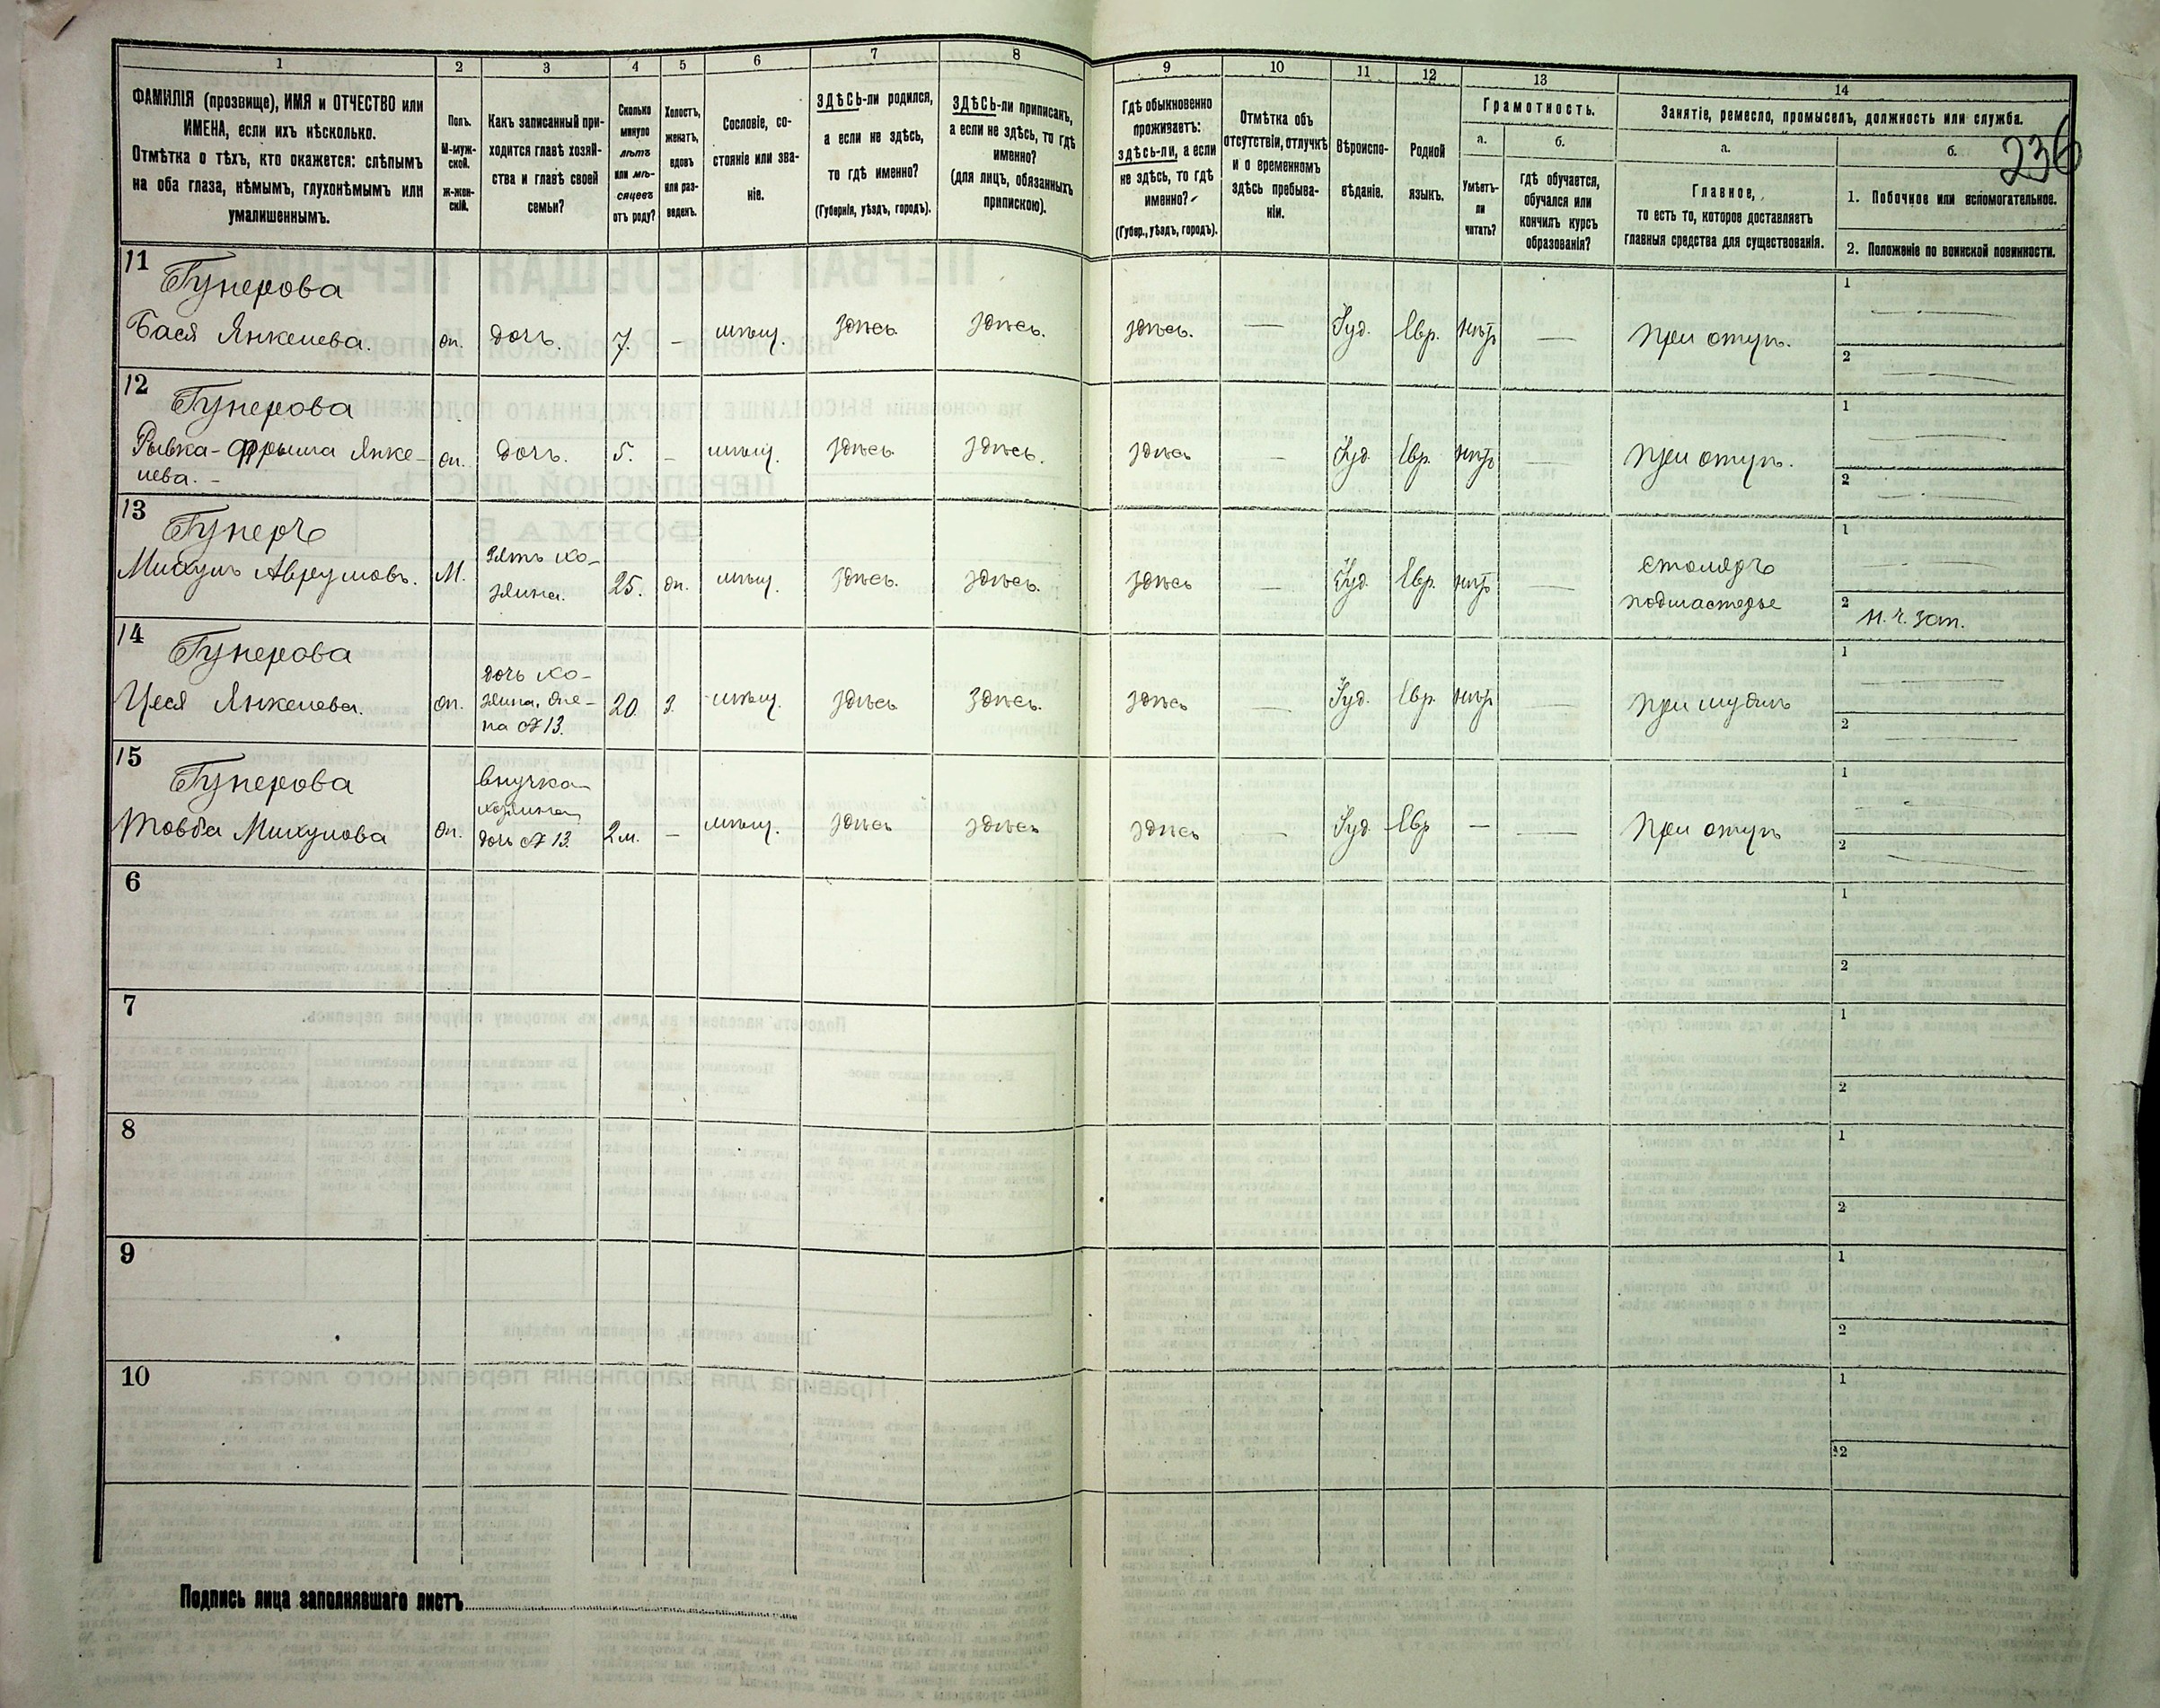 1
2
3
4
5
6
7
8
9
10
11
12
13
14
ФАМИЛІЯ (прозвище), ИМЯ и ОТЧЕСТВО или
ИМЕНА, если ихъ нѣсколько.
Отмѣтка о тѣхъ, кто окажется: слѣпымъ
на оба глаза, нѣмымъ, глухонѣмымъ или
умалишеннымъ.
Полъ.
М-муж-
ской.
Ж-жен-
скій.
Какъ записанный при-
ходится главѣ хозяй-
ства и главѣ своей
семьи?
Сколько
минуло
лѣтъ
или мѣ-
сяцевъ
отъ роду?
Холостъ,
женатъ,
вдовъ
или раз-
веденъ.
Сословіе, со-
стояніе или зва-
ніе.
ЗДѢСЬ-ли родился,
а если не здѣсь,
то гдѣ именно?
(Губернія, уѣздъ, городъ).
ЗДѢСЬ-ли приписанъ,
а если не здѣсь, то гдѣ
именно?
(для лицъ, обязанныхъ
припискою).
Гдѣ обыкновенно
проживаетъ:
здѣсь-ли, а если
не здѣсь, то гдѣ
именно?
(Губер., уѣздъ, городъ).
Отмѣтка объ
отсутствіи, отлучкѣ
и о временномъ
здѣсь пребыва-
ніи.
Вѣроиспо-
вѣданіе.
Родной
языкъ.
Грамотность.
а.
б.
Умѣетъ-
ли
читать?
гдѣ обучается,
обучался или
кончилъ курсъ
образованія?
Занятіе, ремесло, промыселъ, должность или служба.
а.
б.
236
Главное,
то есть то, которое доставляетъ
главныя средства для существованія.
1. Побочное или вспомогательное.
2. Положеніе по воинской повинности.
11
Гунерова
Бася Янкелева.
дочь.
7.
мѣщ.
здѣсь
здѣсь.
здѣсь.
—
Іуд.
Евр.
нѣтъ
—
при отцѣ.
1
2
12
Гунерова
Рывка-Фрыма Янке-
лева. -
дочь.
5.
-
мѣщ.
здѣсь
здѣсь.
здѣсь
Іуд
Евр.
нѣтъ
—
при отцѣ.
1
2
13
Гунеръ
Михулъ Аврумовъ.
М.
Зять хо-
зяина.
25.
мѣщ.
здѣсь.
здѣсь.
здѣсь
—
Іуд
Евр.
нѣтъ
—
столяръ
подмастерье
1
2
н. ч. зап.
14
Гунерова
Цеся Янкелева.
дочь хо-
зяина, же-
на № 13.
20
З.
мѣщ.
здѣсь
здѣсь.
здѣсь
—
Іуд.
Евр.
нѣтъ
—
при мужѣ
1
2
15
Гунерова
Товба Михулова
внучка
хозяина,
дочь № 13.
2 м.
—
мѣщ.
здѣсь
здѣсь
здѣсь
—
Іуд
Евр
—
—
при отцѣ
1
2
6
1
2
7
1
2
8
1
2
9
1
2
10
1
2
Подпись лица заполнявшаго листъ